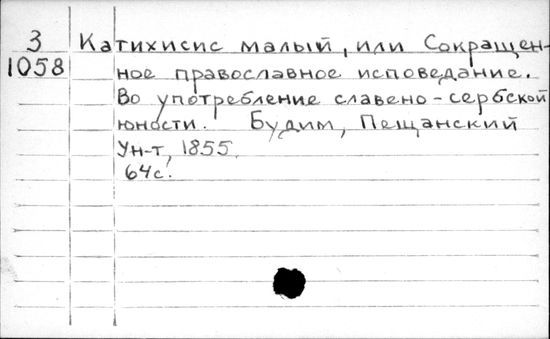 3 Катихисис малый, или Сокращен-
1058 ное православное исповедание.
Во употребление славено-сербской
юности. Будим, Пещанский
Ун-т, 1855.
64с.